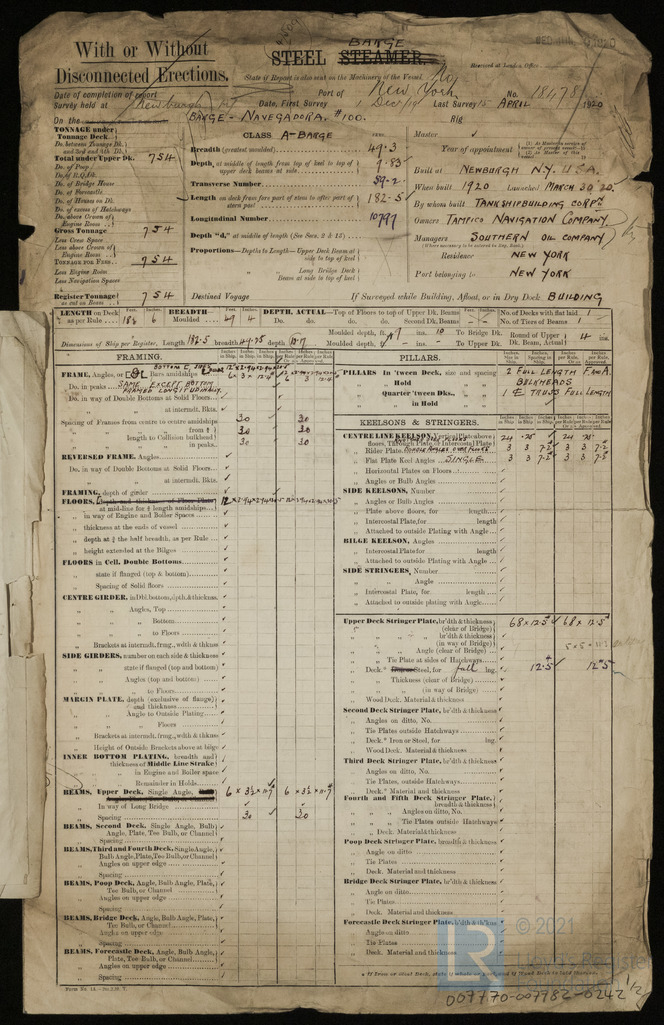 With or Without
Disconnected Erections.
BARGE
STEEL STEAMER.
Received at London Office
State if Report is also sent on the Machinery of the Vessel. No
Date of completion of report
Port of New York
No. 18478
Survey held at Newburgh NY
Date, First Survey 1 Dec/19 Last Survey 15 APRIL 1920
On the BARGE - NAVEGADORA. #100.
Rig
TONNAGE under
Tonnage Deck
Do. between Tonnage Dk.
and 3rd and 4th Dk.
Total under Upper Dk. 754
Do. of Poop
Do. of R.Q.Dk.
Do. of Bridge House
Do. of Forecastle
Do. of Houses on Dk.
Do. of excess of Hatchways
Do. above Crown of
Engine Room
Gross Tonnage 754
Less Crew Space
Less above Crown of
Engine Room
TONNAGE FOR FEES 754
Less Engine Room
Less Navigation Spaces
Register Tonnage 754
as cut on Beam
CLASS A-BARGE
Breadth (greatest moulded) 49.3
Depth, at middle of length from top of keel to top of
upper deck beams at side 9.83
Transverse Number 59.2
Length on deck from fore part of stem to after part of
stern post 182-5
Longitudinal Number 10797
Depth "d," at middle of length (See Secs. 2 & 13)
Proportions—Depths to Length—Upper Deck Beam at
side to top of keel
" " Long Bridge Deck
Beam at side to top of keel
Destined Voyage
Master
Year of appointment
Built at NEWBURGH N.Y. U.S.A.
When built 1920 Launched MARCH 30 20.
By whom built TANKSHIPBUILDING CORPN
Owners TAMPICO NAVIGATION COMPANY.
Managers SOUTHERN OIL COMPANY
Residence NEW YORK
Port belonging to NEW YORK
If Surveyed while Building, Afloat, or in Dry Dock. BUILDING
LENGTH on Deck as per Rule
BREADTH— Moulded 49 4
DEPTH, ACTUAL—Top of Floors to top of Upper Dk. Beams
Do. do. do. Second Dk. Beams
No. of Decks with flat laid 1
No. of Tiers of Beams 1
Dimensions of Ship per Register, Length 182.5 breadth 49.25 depth
Moulded depth, ft. ins. 10 To Bridge Dk.
Moulded depth, ft. ins. To Upper Dk.
Round of Upper Dk. Beam, Actual 4 ins.
FRAMING.
FRAME, Angles, or Bars amidships
Do. in peaks SAME EXCEPT BOTTOM
FRAMED LONGITUDINALLY.
Do. in way of Double Bottoms at Solid Floors
" at intermdt. Bkts.
Spacing of Frames from centre to centre amidships 30 30
" from length to Collision bulkhead 30 30
" in peaks 30 30
REVERSED FRAME, Angles
Do. in way of Double Bottoms at Solid Floors
" at intermdt. Bkts.
FRAMING, depth of girder
FLOORS, Depth and thickness of Floor Plate
at mid-line for ½ length amidships
" in way of Engine and Boiler Spaces
" thickness at the ends of vessel
" depth at ¾ the half breadth, as per Rule
" height extended at the Bilges
FLOORS in Cell. Double Bottoms
" state if flanged (top & bottom)
" Spacing of Solid floors
CENTRE GIRDER, in Dbl. bottom, depth & thickness
" Angles, Top
" Bottom
" to Floors
" Brackets at intermdt. frmg., width & thkns
SIDE GIRDERS, number on each side & thickness
" state if flanged (top and bottom)
" Angles (top and bottom)
" to Floors
MARGIN PLATE, depth (exclusive of flange)
and thickness
" Angle to Outside Plating
" Floors
" Brackets at intermdt. frmg., width & thkns
" Height of Outside Brackets above at bilge
INNER BOTTOM PLATING, breadth and
thickness of Middle Line Strake
" in Engine and Boiler space
" Remainder in Holds
BEAMS, Upper Deck, Single Angle, 6 x 3½ x 11.7 6 x 3½ x 11.7
" In way of Long Bridge
" Spacing 30 30
BEAMS, Second Deck, Single Angle, Bulb
Angle, Plate, Tee Bulb, or Channel
" Spacing
BEAMS, Third and Fourth Deck, Single Angle,
Bulb Angle, Plate, Tee Bulb, or Channel
" Angles on upper edge
" Spacing
BEAMS, Poop Deck, Angle, Bulb Angle, Plate,
Tee Bulb, or Channel
" Angles on upper edge
" Spacing
BEAMS, Bridge Deck, Angle, Bulb Angle, Plate,
Tee Bulb, or Channel
" Angles on upper edge
" Spacing
BEAMS, Forecastle Deck, Angle, Bulb Angle,
Plate, Tee Bulb, or Channel
" Angles on upper edge
" Spacing
PILLARS.
PILLARS In 'tween Deck, size and spacing 2 FULL LENGTH F & A.
" Hold BULKHEADS
" Quarter 'tween Dks., 1 TRUSS FULL LENGTH
" in Hold
KEELSONS & STRINGERS.
CENTRE LINE KEELSON, Vertical Plate above
floors, Through Plate or Intercostal Plate 24 24
" Rider Plate 3 3 3 3
" Flat Plate Keel Angles SINGLE 3 3 3 3
" Horizontal Plates on Floors
" Angles or Bulb Angles
SIDE KEELSONS, Number
" Angles or Bulb Angles
" Plate above floors, for length
" Intercostal Plate, for length
" Attached to outside Plating with Angle
BILGE KEELSON, Angles
" Intercostal Plate for length
" Attached to outside Plating with Angle
SIDE STRINGERS, Number
" Angle
" Intercostal Plate, for length
" Attached to outside plating with Angle
Upper Deck Stringer Plate, br'dth & thickness 68 x 12.5 68 x 12.5
(clear of Bridge)
" br'dth & thickness
(in way of Bridge)
" Angle (clear of Bridge)
" Tie Plate at sides of Hatchways
" Deck.* Steel, for full lng. 12.5 12.5
" Thickness (clear of Bridge)
" (in way of Bridge)
" Wood Deck. Material & thickness
Second Deck Stringer Plate, br'dth & thickness
" Angles on ditto, No.
" Tie Plates outside Hatchways
" Deck.* Iron or Steel, for lng.
" Wood Deck. Material & thickness
Third Deck Stringer Plate, br'dth & thickness
" Angles on ditto, No.
" Tie Plates, outside Hatchways
" Deck.* Material and thickness
Fourth and Fifth Deck Stringer Plate,
breadth & thickness
" Angles on ditto, No.
" Tie Plates outside Hatchways
" Deck. Material & thickness
Poop Deck Stringer Plate, breadth & thickness
" Angle on ditto
" Tie Plates
" Deck. Material and thickness
Bridge Deck Stringer Plate, br'dth & thickness
" Angle on ditto
" Tie Plates
" Deck. Material and thickness
Forecastle Deck Stringer Plate, br'dth & th'kns
" Angle on ditto
" Tie Plates
" Deck. Material and thickness
© 2021
Lloyd's Register
007770-007782-0242 1/2